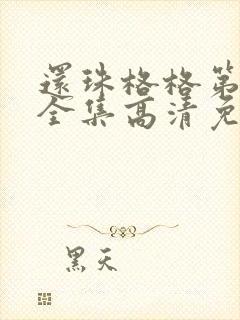 還珠格格第
全集高清免
黑天